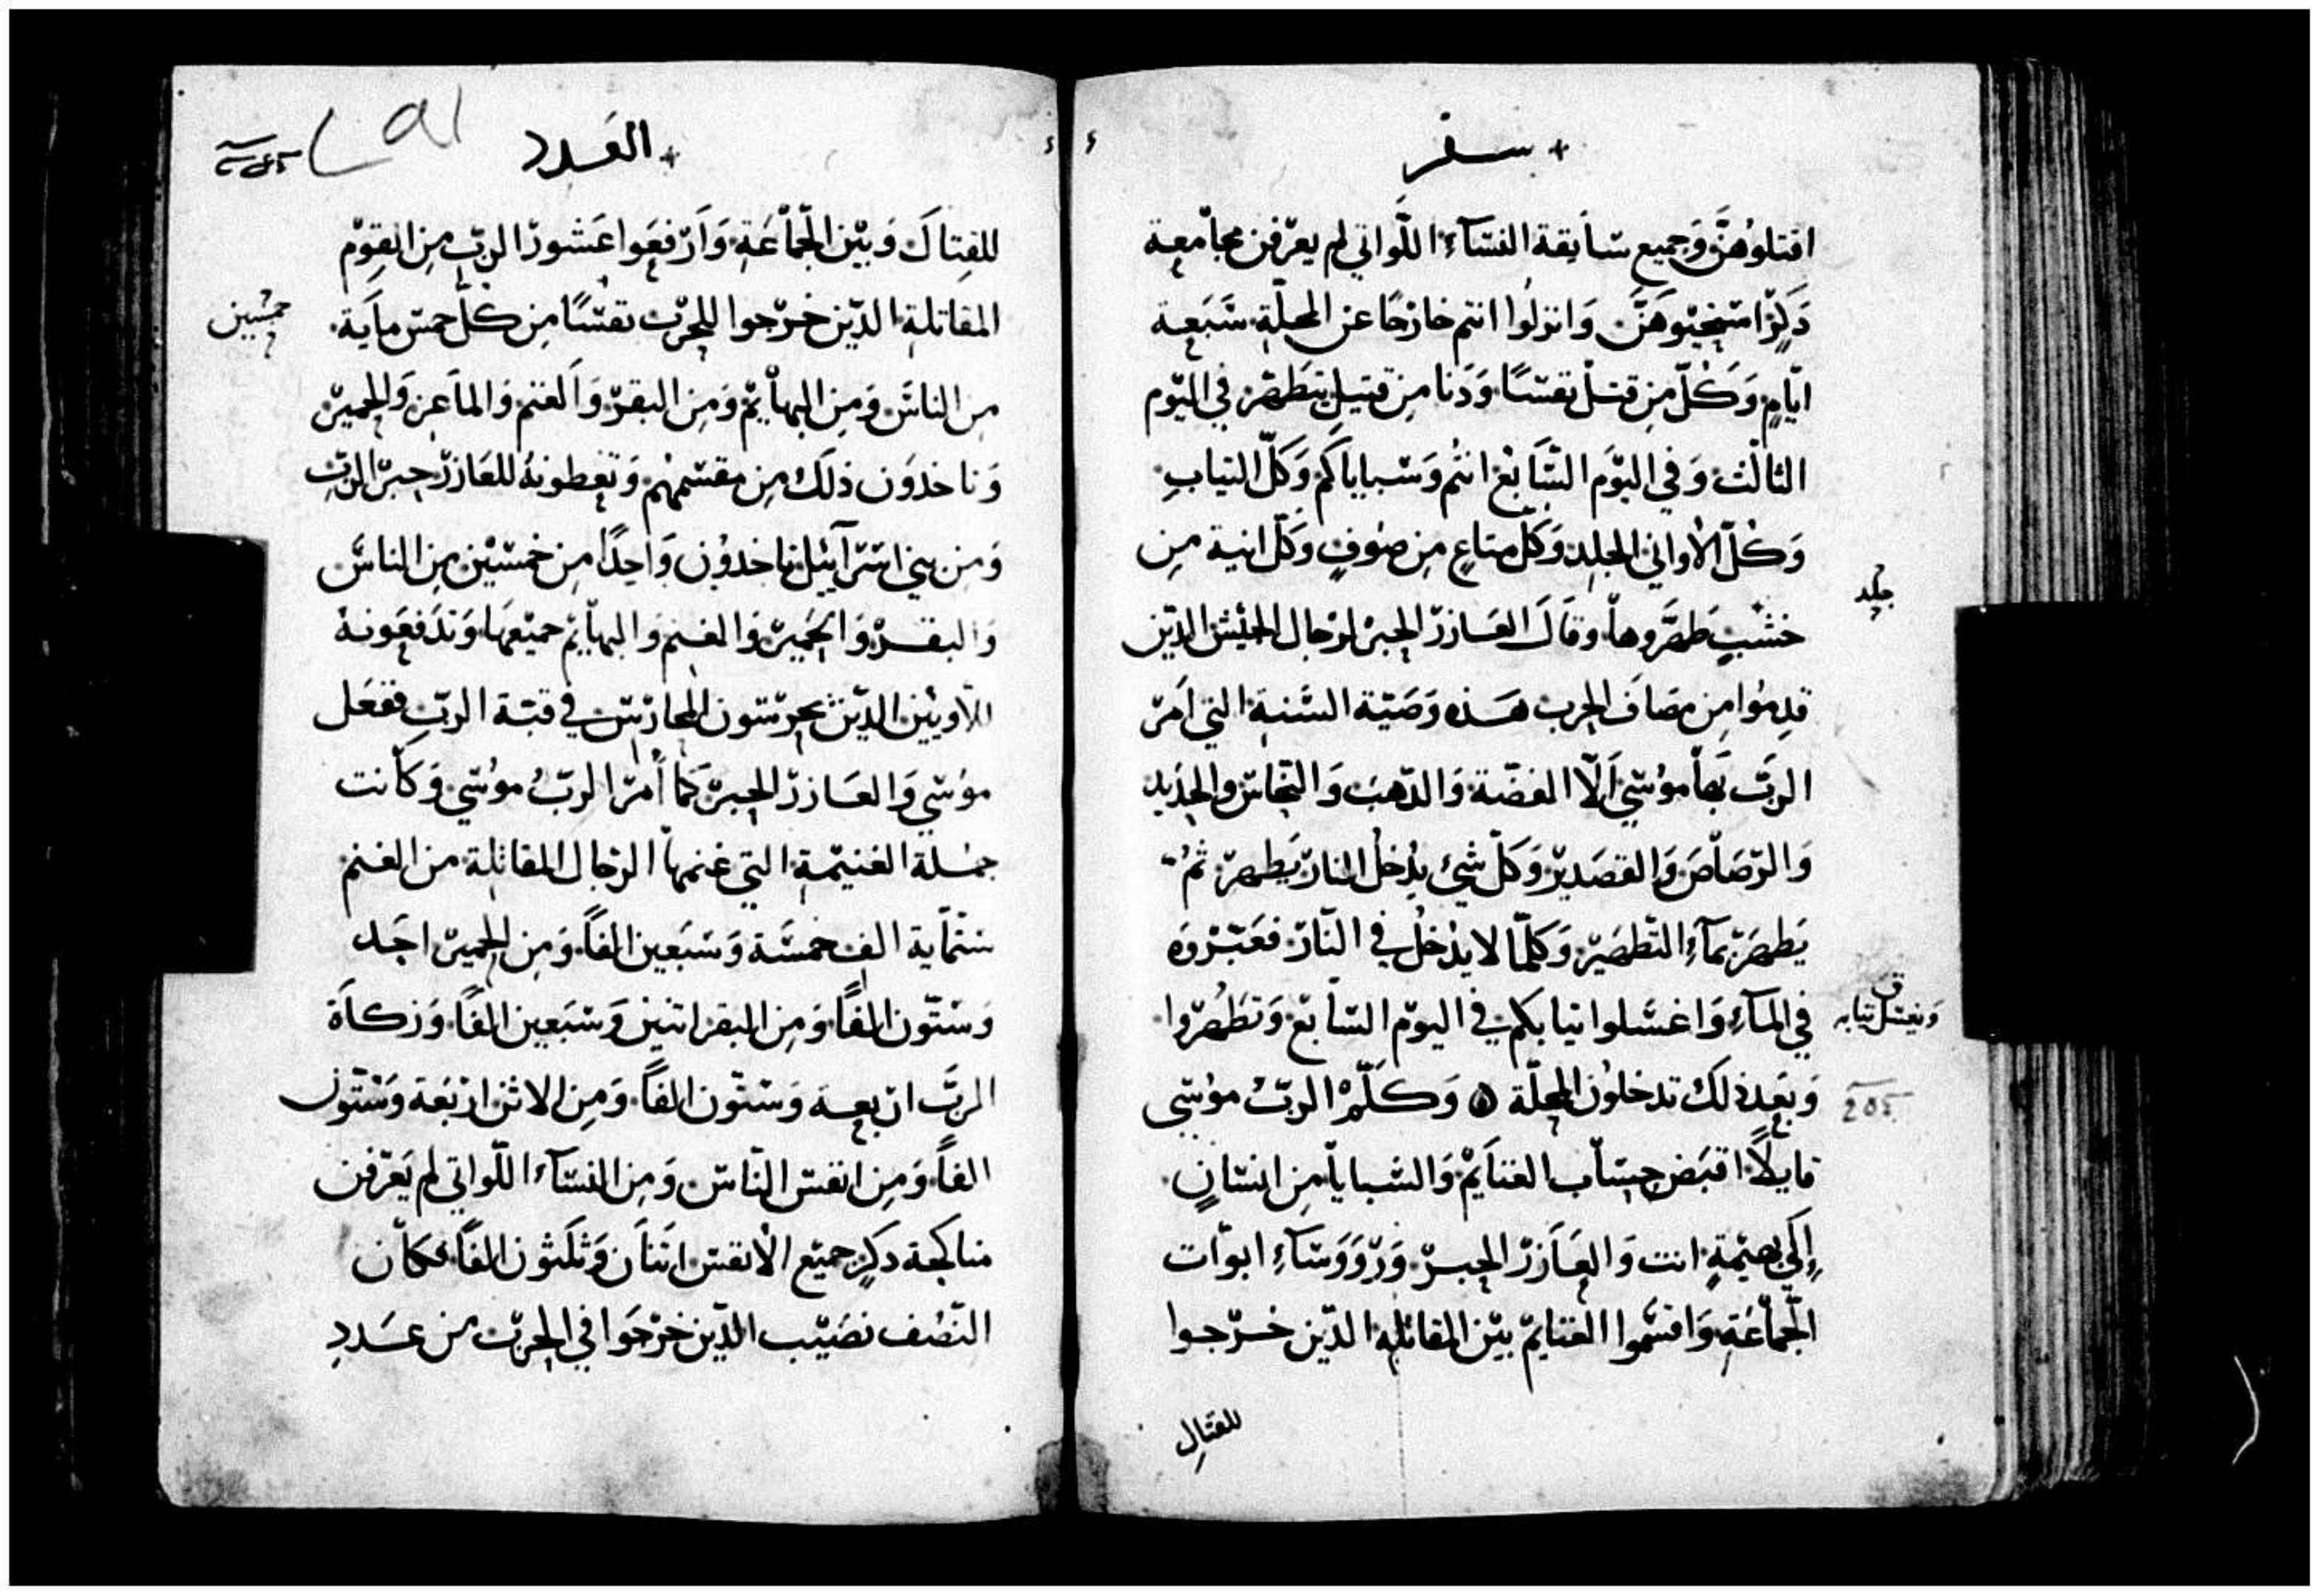 سفر
اقتلوهنّ وَجميع سَابقة النسَآءِ اللّواتي لم يعرّفن مجاْمعة
ذَكرٍ استحيُوهنَّ وَانزلُوا انتم خارجًا عن المحلّةِ سَبَعة
ايّامٍ وَكُلّ من قتل نفسًا وَدَنا من قتيلٍ يتطَهّر في اليَوم
الثالث وَفي اليَوَم السَّابعْ انتُم وَسْباياكم وَكلّ الثيابِ
وَكلّ الأواني الجلدِ وَكلّ متاعٍ مِن صُوفٍ وَكلّ انية مِن
جلد
خشبٍ طهّروهاْ وقاَلَ العَازرّ الحبرْ لرجال الجيْش الذّين
قدِمُوا مِن مصَاف الحرب هَذه وَصَيّة السّنة التي اَمرّ
الربّ بَهاْ موُسَي اَلّا الفضّة وَالذّهبَ وَالنّحاسّ وَالحدَيد
وَالرّصَاْصَ وَالقصَديرّ وَكلّ شيء يدخلُ النارّ يَطهرّ ثُم
يَطهَرّ بمآءِ التّطهَيرْ وَكلمّا لا يدْخلُ في النّارّ فعَبّرْوهَ
في المآءِ وَاغسَلوا ثيابكم في اليوَم السّابعْ وَتطَهُرّوا
وَيغسَل ثيابه
وَبعَد ذلكَ تدخلوُن المحلّة ۞ وَكلّمْ الربُّ موُسَي
قايلًا اقبَض حِسَاب الغنَايمْ وَالسْباياْ مِن انسَانٍ
إلَي بهيْمةٍ انت وَالعَازرّ الحبرّ وَرّوَوَسَآءِ ابوّات
الجمَاْعَةِ وَاقسْموا الغنايمْ بيْن المقاتلِه الذّين خرّجوا
للقتالِ
العَدد
للقِتالَ وَبيْن الجمَاْعَةِ وَارّفعَوا عَشورّ الربّ مِن القوِمْ
المقاتلةِ الذّين خرّجوا للحرّب نفسًا مِن كلّ خمسّ ماَية
خمسَين
مِن الناسّ وَمِن البهاْيمْ وَمِن البقرّ وَاَلغنم وَالماَعِز وَالحميرّ
وَتاخذوَن ذلَك مِن مقسَمهُم وَتعَطونهُ للعَازرّ حبرّ الربّ
وَمن بني اسَرآييل تاخذوُن وَاحدًا مِن خمسَيْن مِن الناسَّ
وَالبقرْ وَالحَميرّ وَالغنم وَالبهاْيمْ جميَعهَا وَتدَفعَونهُ
للّاويْين الذّين يحرّسَون المحارّسّ في قبَة الربّ ففعَل
موُسَي وَالعَازرّ الحبرّ كَما أمرّ الربُّ موُسَي وَكاْنت
جمْلة الغنيْمةِ التي غنمهاْ الرّجال المقاتلِة من الغنم
سَتمّاية الف خمسَة وَسْبَعين الفاً وَمِن الحميرّ احَد
وَسْتّون الفاً وَمِن البقر اثنين وَسْبَعين الفاً وَزكاَة
الربَّ ارّبعة وَسْتّون الفاً وَمِن الاثن ارّبَعَة وَسْتّون
الفاً وَمِن انفسّ النّاسّ وَمِن النسَآءِ اللّواتي لم يَعَرّفن
مناكحة ذكرٍ جميْع الأنفسّ اثنَاَن وَثلَثون الفاً فكاْن
النّصْف نصَيْب الذّين خرّجَوا في الحرّب من عَددِ